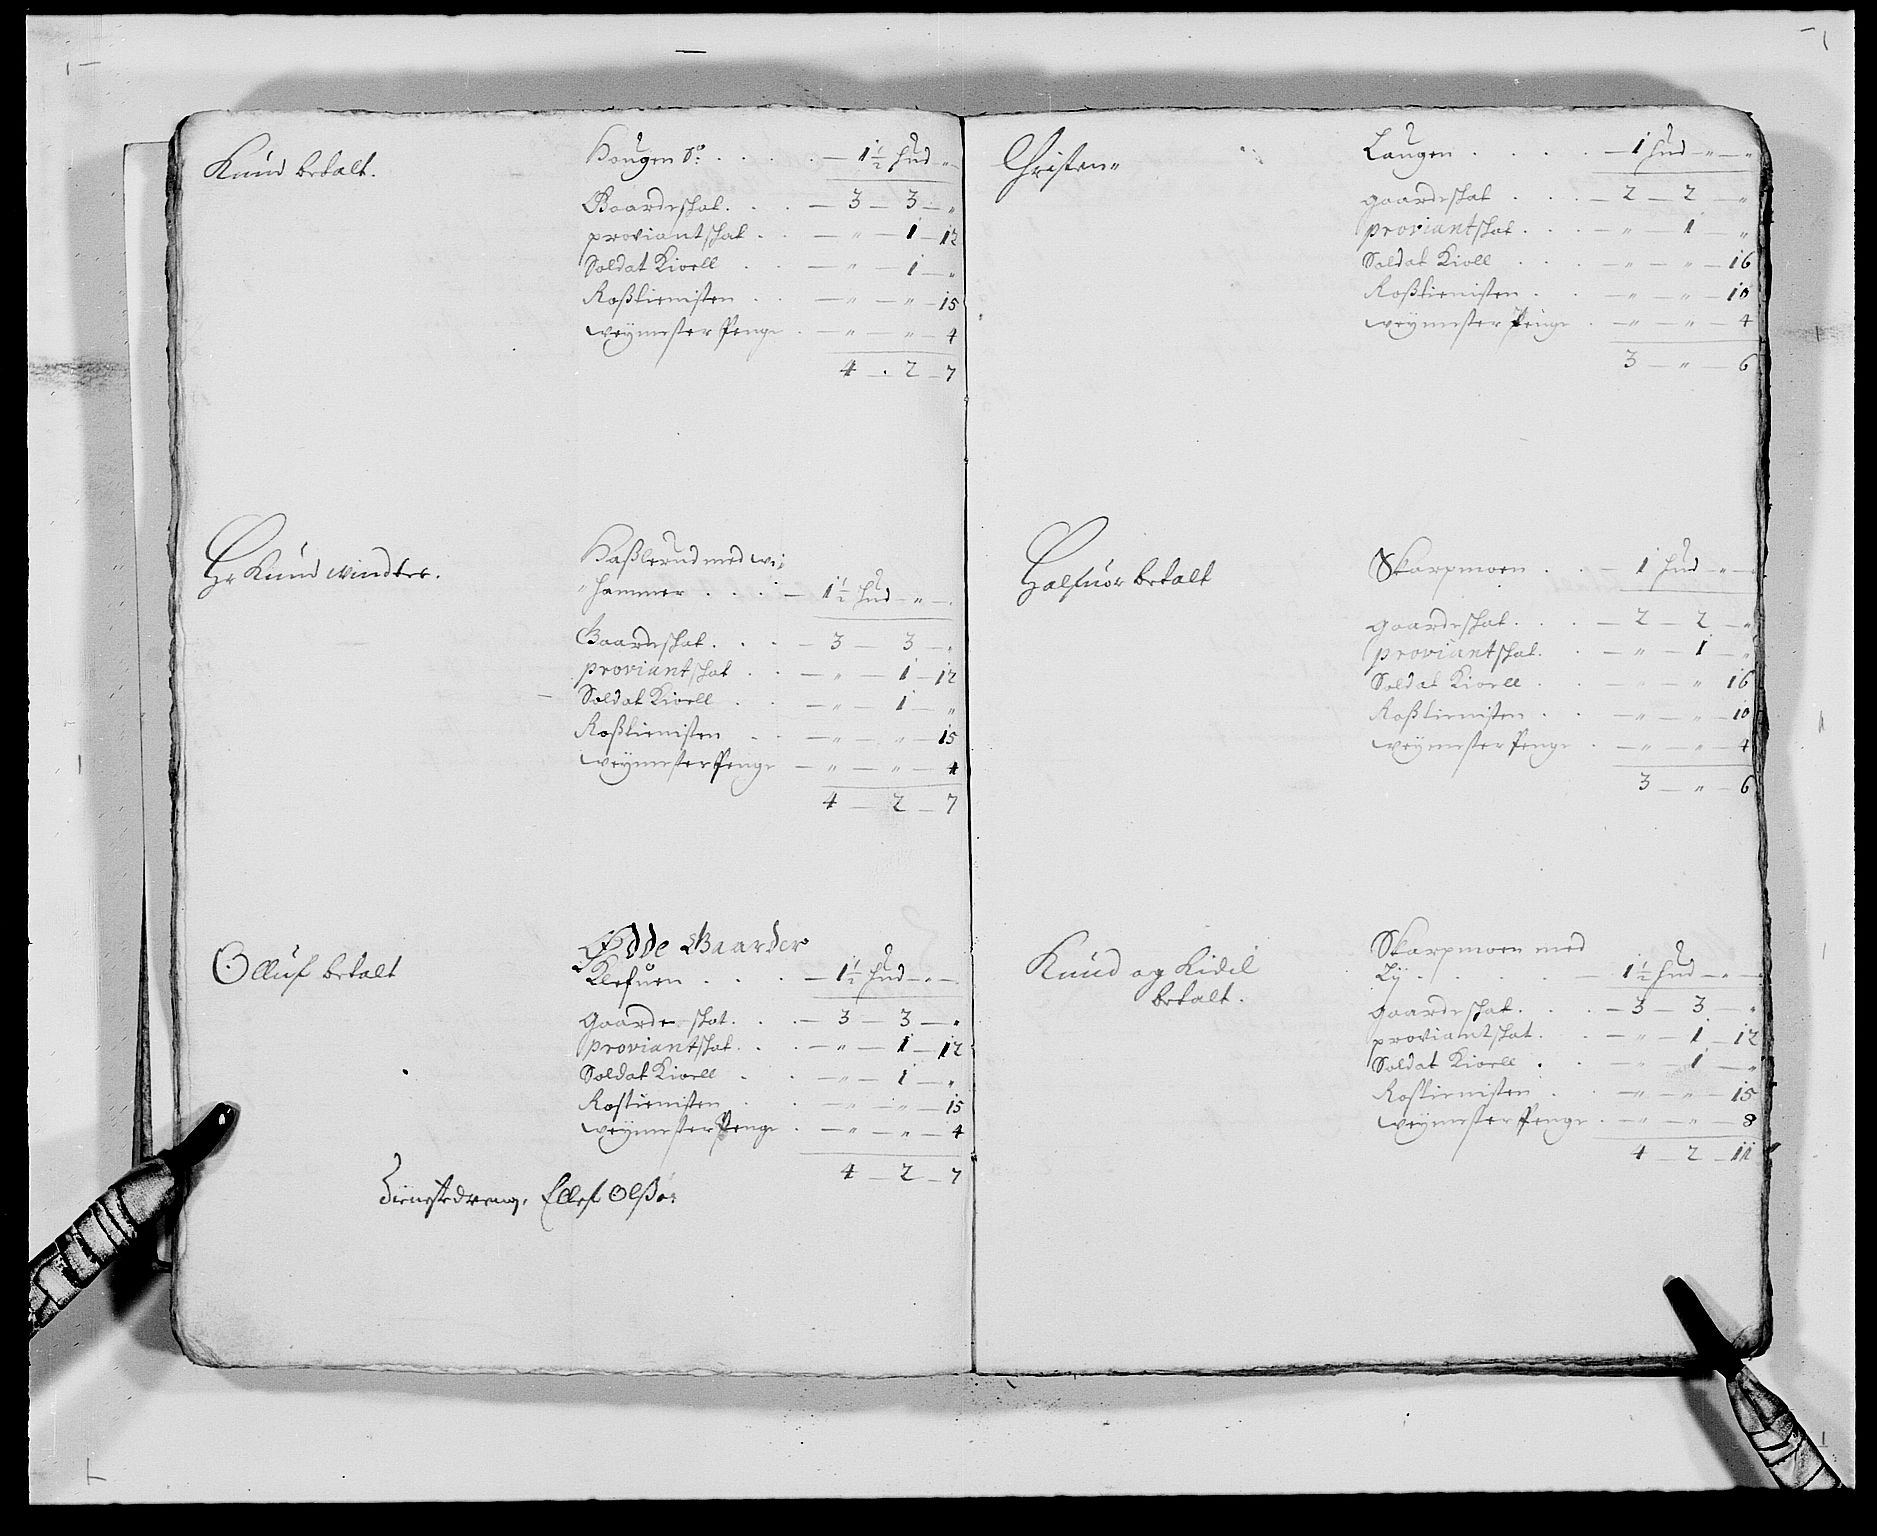 Knud betalt.
Hougen Sø: . . . . — 1½ hud „ —
Gaardeschat. . . — 3 — 3 — „
proviantschat . . — „ — 1 — 12
Soldat Kioell . . — „ — 1 — „
Roßtienisten . . — „ — „ — 15
weymester Penge . — „ — „ — 4
4 — 2 — 7
Hr Knud Windter.
Haßlerud med wi:
hammer . . . . — 1½ hud — „ —
Gaardeschat. . . — 3 — 3 — „
proviantschat . . — „ — 1 — 12
Soldat Kioell . . — „ — 1 — „
Roßtienisten . . — „ — „ — 15
weymester Penge — „ — „ — 4
4 — 2 — 7
Olluf betalt
Ødde Gaarder
Klefuen . . . . — 1½ hud — „ —
gaardeschat. . . — 3 — 3 — „
proviantschat. . . — „ — 1 — 12
Soldat Kioell . . — „ — 1 — „
Rostienisten . . — „ — „ — 15
weymester Penge . — „ — „ — 4
4 — 2 — 7
Tienstedreng, Ellef Olßø:
Christen „
Laugen . . . . . — 1 hud — „ — „
gaardeschat . . . — 2 — 2 — „
proviantschat. . . — „ — 1 — „
Soldat Kioll . . . — „ — „ — 16
Roßtienisten . . — „ — „ — 10
weymester Penge . — „ — „ — 4
3 — „ — 6
Halfuor betalt
Skarpmoen . . — 1 hud — „ —
gaardeschat. . . — 2 — 2 — „
proviantschat. . — „ — 1 — „
Soldat Kioell . . — „ — „ 16
Roßtienisten . . — „ — „ — 10
weymester Penge . — „ — „ — 4
3 — „ — 6
Knud og Kidil
betalt.
Skarpmoen med
Ly . . . . . — 1½ hud — „ —
gaardeschat. . . — 3 — 3 — „
proviantschat. . — „ — 1 — 12
Soldat Kioell . . — „ — 1 — „
Rostienisten . . — „ — „ — 15
weymester Penge . — „ — „ — 8
4 — 2 — 11